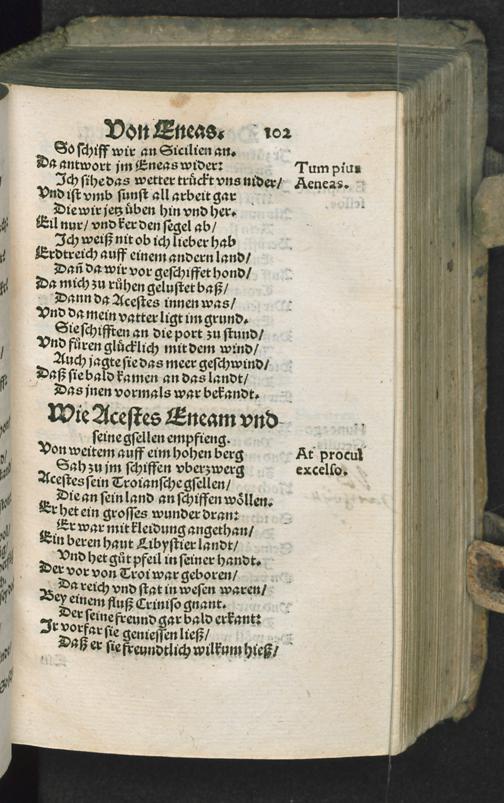 Von Eneas. 102
So schiff wir an Sicilien an.
Da antwort jm Eneas wider:
Tum pius
Ich sihe das wetter trückt vns nider/
Aeneas.
Vnd ist vmb sunst all arbeit gar
Die wir jetz üben hin vnd her.
Eil nur/ vnd ker den segel ab/
Ich weiß nit ob ich lieber hab
Erdtreich auff einem andern land/
Dañ da wir vor geschiffet hond/
Da mich zu rühen gelustet baß/
Dann da Acestes innen was/
Vnd da mein vatter ligt im grund.
Sie schifften an die port zu stund/
Vnd füren glücklich mit dem wind/
Auch jagte sie das meer geschwind/
Daß sie bald kamen an das landt/
Das jnen vormals war bekandt.
Wie Acestes Eneam vnd
seine gsellen empfieng.
Von weitem auff eim hohen berg
At procul
Sah zu jm schiffen vberzwerg
excelso.
Acestes sein Troiansche gsellen/
Die an sein land an schiffen wöllen.
Er het ein grosses wunder dran:
Er war mit kleidung angethan/
Ein beren haut Libystier landt/
Vnd het güt pfeil in seiner handt.
Der vor von Troi war geboren/
Da reich vnd stat in wesen waren/
Bey einem fluß Criniso gnant.
Der seine freund gar bald erkant:
Ir vorfar sie geniessen ließ/
Daß er sie freundtlich wilkum hieß/